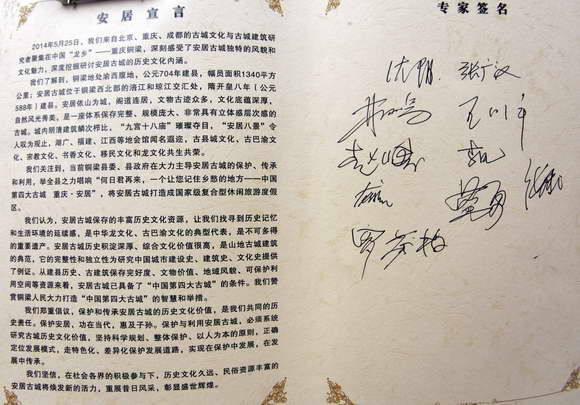 安居宣言
2014年5月25日，我们来自北京、重庆、成都的古城文化与古城建筑研
究者聚集在中国“龙乡”——重庆铜梁，深刻感受了安居古城独特的风貌和
文化魅力，深度挖掘研讨安居古城的历史文化内涵。
我们了解到，铜梁地处渝西腹地，公元704年建县，幅员面积1340平方
公里；安居古城位于铜梁西北部的涪江和琼江交汇处，隋开皇八年（公元
588年）建县。安居依山为城，阁道连居，文物古迹众多，文化底蕴深厚，
自然风光秀美，是一座体系保存完整、规模庞大、非常具有立体感层次感的
古城。城内明清建筑鳞次栉比，“九宫十八庙”璀璨夺目，“安居八景”令
人叹为观止，湖广、福建、江西等地会馆闻名遐迩，古县城文化、古巴渝文
化、宗教文化、书香文化、移民文化和龙文化共生共荣。
我们关注到，当前铜梁县委、县政府在大力主导安居古城的保护、传承
和利用，举全县之力唱响“何日君再来，一个让您记住乡愁的地方——中国
第四大古城 重庆·安居”，将安居古城打造成国家级复合型休闲旅游度假
区。
我们认为，安居古城保存的丰富历史文化资源，让我们找寻到历史记忆
和生活环境的延续感，是中华龙文化、古巴渝文化的典型代表，是不可多得
的重要遗产。安居古城历史积淀深厚、综合文化价值很高，是山地古城建筑
的典范，它的完整性和独立性为研究中国城市建设史、建筑史、文化史提供
了例证。从建县历史、古建筑保存完好度、文物价值、地域风貌、可保护利
用空间等资源来看，安居古城已具备了“中国第四大古城”的条件。我们赞
赏铜梁人民大力打造“中国第四大古城”的智慧和举措。
我们郑重倡议，保护和传承安居古城的历史文化价值，是我们共同的历
史责任。保护安居，功在当代，惠及子孙。保护与利用安居古城，必须系统
研究古城历史文化价值，坚持科学规划、整体保护、以人为本的原则，正确
定位发展模式，走特色化、差异化保护发展道路，实现在保护中发展，在发
展中传承。
我们坚信，在社会各界的积极参与下，历史文化久远、民俗资源丰富的
安居古城将焕发新的活力，重展昔日风采，彰显盛世辉煌。
专家签名
张广汉
罗芬梅